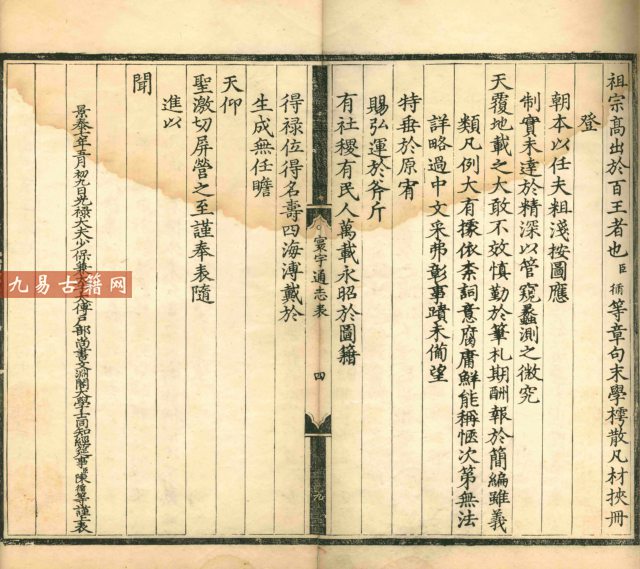 祖宗高出於百王者也臣循等章句末學樗散凡材挾冊
登
朝本以任夫粗淺按圖應
制實未達於精深以管窺蠡測之微究
天覆地載之大敢不效慎勤於筆札期酬報於簡編雖義
類凡例大有據依柰詞意腐庸鮮能稱愜次第無法
詳略過中文采弗彰事蹟未備望
特垂於原宥
賜弘運於斧斤
有社稷有民人萬載永昭於圖籍
寰宇通志表
四
得祿位得名壽四海溥戴於
生成無任瞻
天仰
聖激切屏營之至謹奉表隨
進以
聞
景泰七年五月初九日光祿大夫少保兼太子太傅戶部尚書文淵閣大學士同知經筵事臣陳循等謹上表
九易古籍网